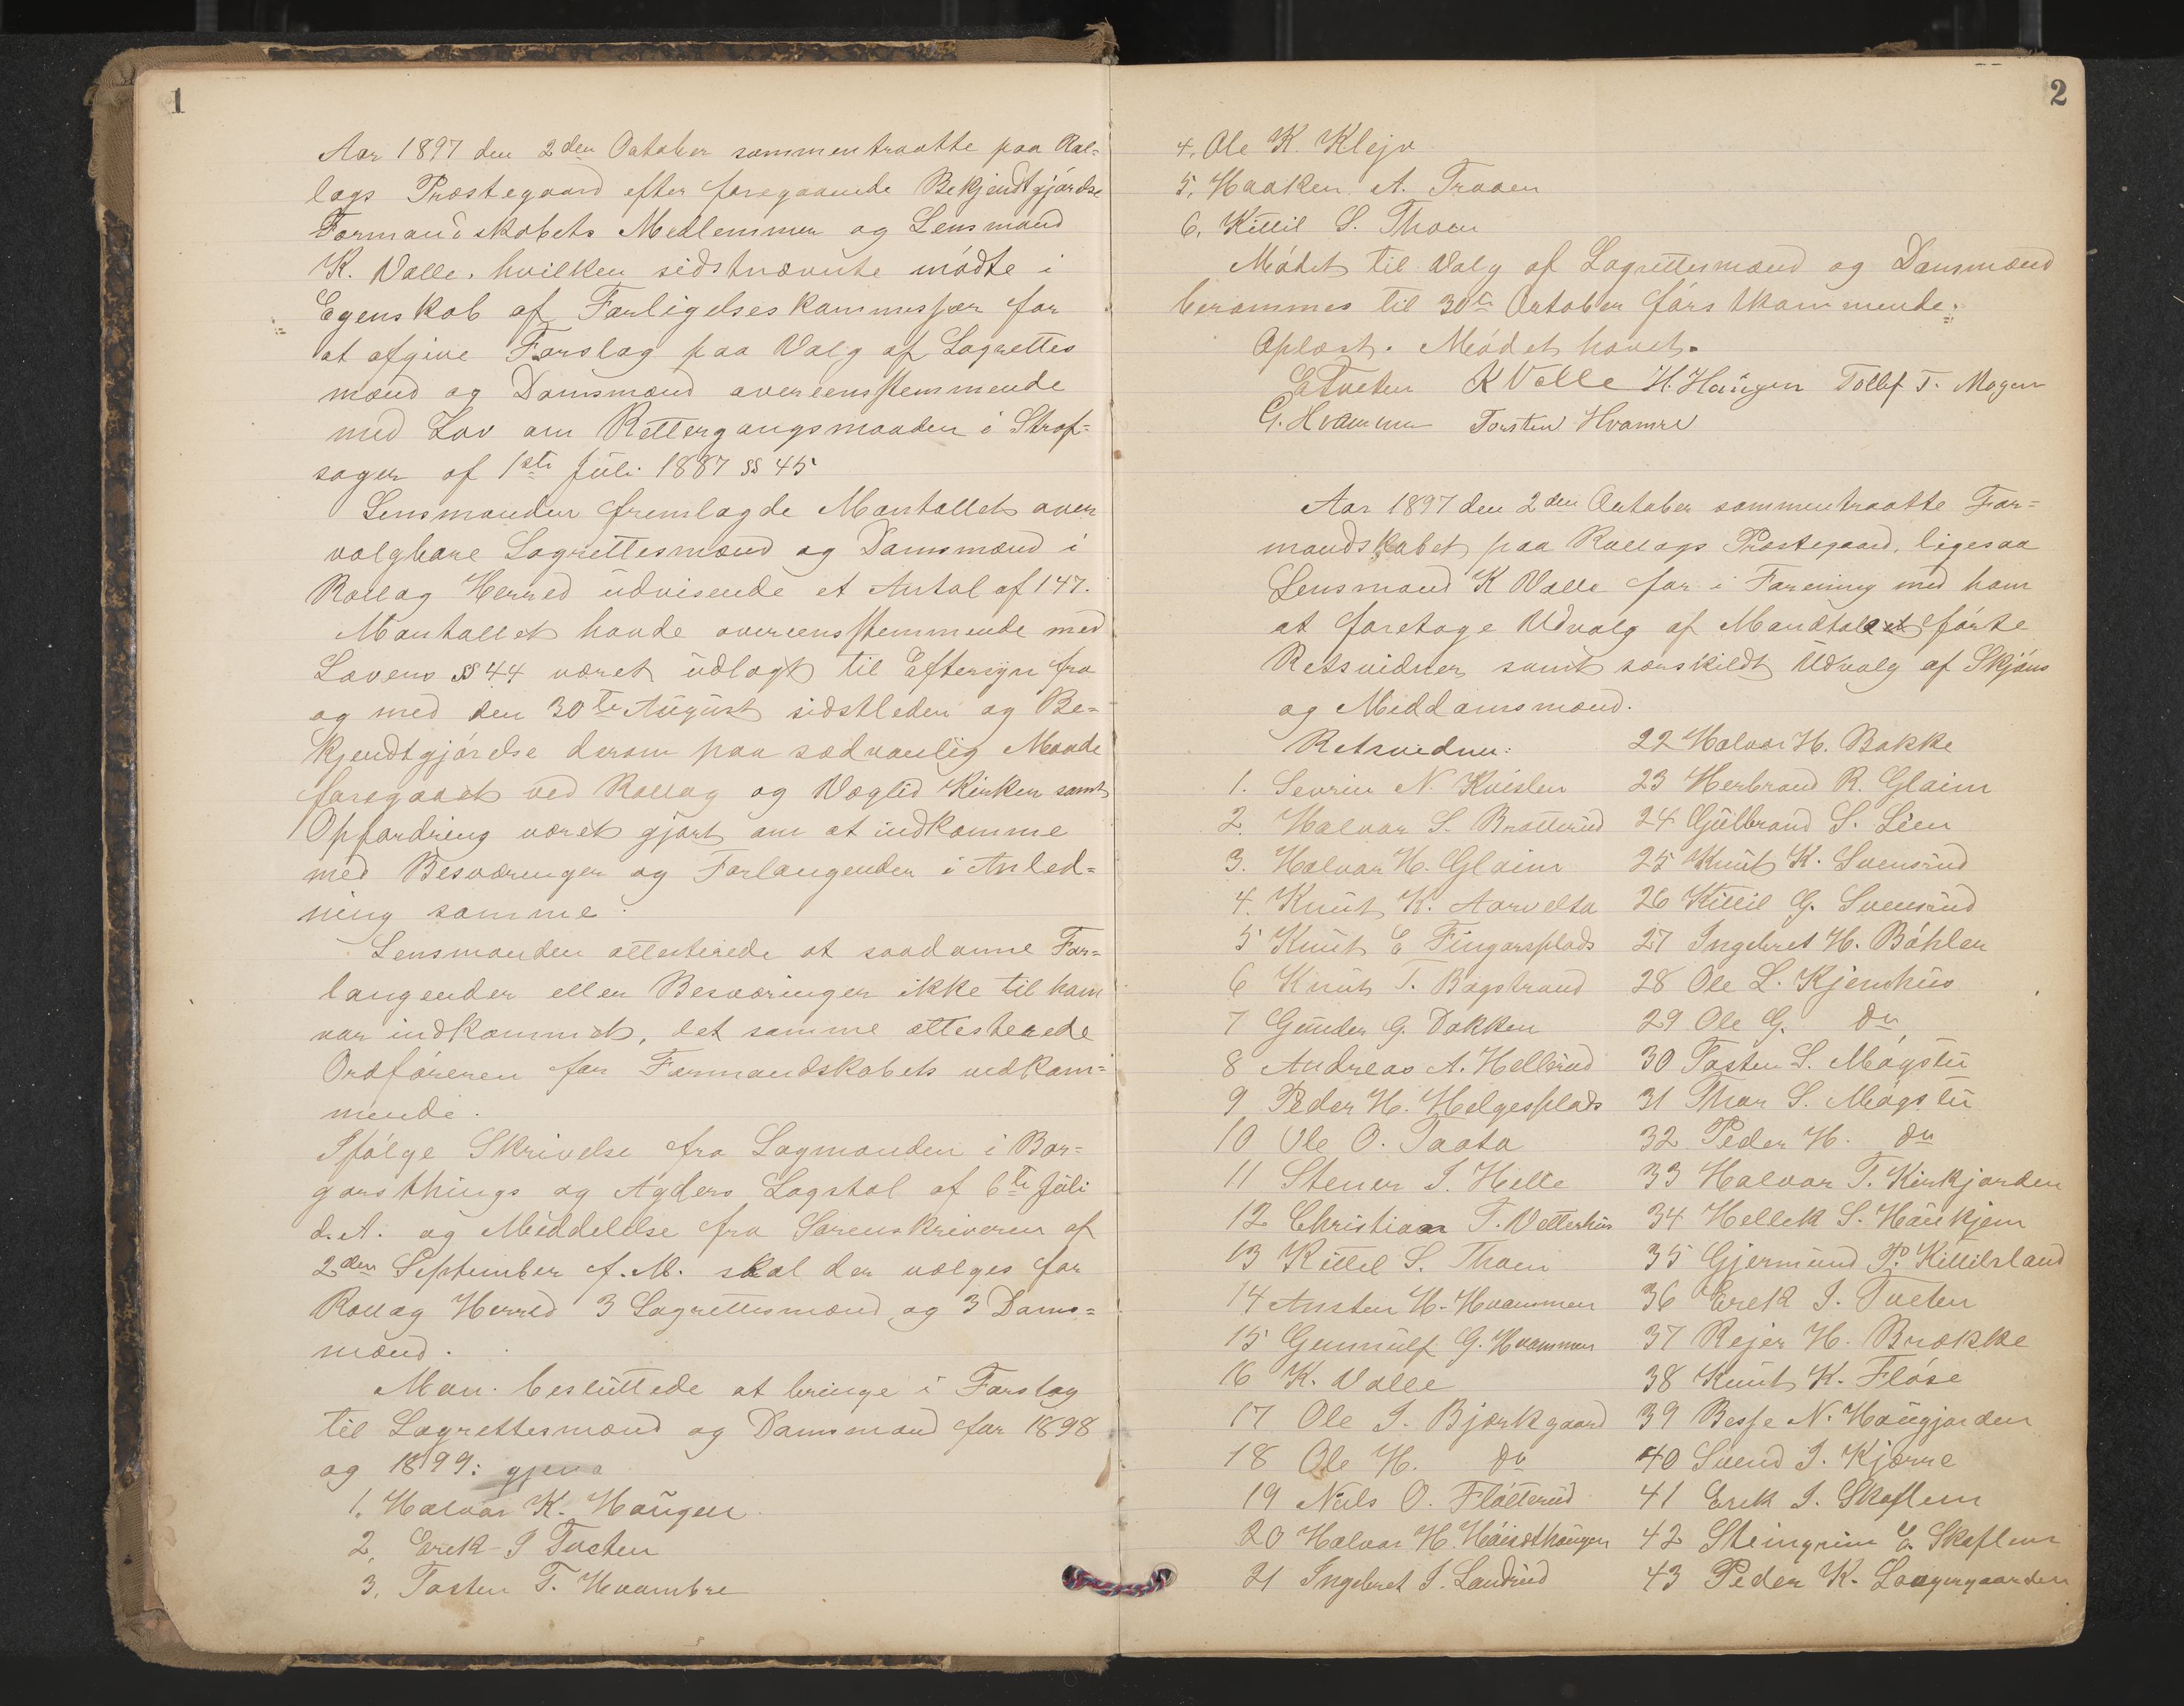 1
Aar 1897 den 2den October sammentraatte paa Rol=
lags Præstegaard efter foregaaende Bekjendtgjørelse
Formandskabets Medlemmer og Lensmand
K. Valle, hvilken sidstnævnte mødte i
Egenskab af Forligelseskommissær for
at afgive Forslag paa Valg af Lagrettes
mænd og Domsmænd overeensstemmende
med Lov om Rettergangsmaaden i Straf=
sager af 1ste Juli 1887 §§ 45
Lensmanden fremlagde Mantallet over
valgbare Lagrettesmænd og Domsmænd i
Rollag Herred udvisende et Antal af 147.
Mantallet havde overeensstemmende med
Lovens §§ 44 været udlagt til Eftersyn fra
og med den 30te August sidstleden og Be=
kjendtgjørelse derom paa sædvanlig Maade
foregaaet ved Rollag og Væglid Kirker samt
Opfordring været gjort om at indkomme
med Besværinger og Forlangender i Anled=
ning samme.
Lensmanden attesterede at saadanne For=
langender eller Besværinger ikke til ham
var indkommet, det samme attesterede
Ordføreren for Formandskabets vedkom=
mende.
Ifølge Skrivelse fra Lagmanden i Bor=
garsthings og Agders Lagstol af 6te Juli
d.A. og Meddelelse fra Sorenskriveren af
2den September f.M. skal der vælges for
Rollag Herred 3 Lagrettesmænd og 3 Doms=
mænd.
Man besluttede at bringe i Forslag
til Lagrettesmænd og Domsmænd for 1898
og 1899:
1. Halvor K. Haugen
2, Erek J Tveten
3, Tosten T. Hvambre
2
4, Ole K. Klejv
5, Haaken A. Traaen
6, Kittil S. Thoen
Mødet til Valg af Lagrettesmænd og Domsmænd
berammes til 30te October førstkommende.
Oplæst. Mødet hævet.
E Tveten K Valle H. Haugen Tollef T. Mogen
G. Hvammen Torsten Hvamre
Aar 1897 den 2den October sammentraatte For=
mandskabet paa Rollags Præstegaard, ligesaa
Lensmand K Valle for i Forening med ham
at foretage Udvalg af Mandtallet førte
Retsvidner samt særskildt Udvalg af Skjøns
og Meddomsmænd.
Retsvidner:
1. Sevrin N. Kvislen
2. Halvor S. Bratterud
3. Halvor H. Glaim
4. Knut K. Aarvelta
5 Knut E Fingarsplads
6 Knut T. Bagstrand
7 Gunder G. Dokken
8 Andreas A. Hellerud
9 Peder H. Helgesplads
10 Ole O. Taata
11 Stener J. Helle
12 Christian T. Vetterhus
13 Kittel S. Thoen
14 Ansten H. Hvammen
15 Gunnulf G. Hvammen
16 K. Valle
17 Ole J. Bjørkgaard
18 Ole H. do
19 Nils O. Fløtterud
20 Halvor H.
21 Ingebret J. Landrud
22 Halvor H. Bakke
23 Herbrand R. Glaim
24 Gulbrand S. Lien
25 Knut K. Svensrud
26 Kittil G. Svensrud
27 Ingebret H. Bøhlen
28 Ole L. Kjemhus
29 Ole G. do
30 Tosten S. Møgstu
31 Thor S. Møgstu
32 Peder H. do
33 Halvor T. Kirkjorden
34 Hellek S. Haukjem
35 Gjermund P. Kittilsland
36 Erek J. Tveten
37 Rejer H. Brække
38 Knut K. Fløse
39 Besse N. Haugjorden
40 Svend J. Kjønne
41 Erek J. Skaflem
42 Steingrim E. Skaflem
43 Peder K. Laagergaarden